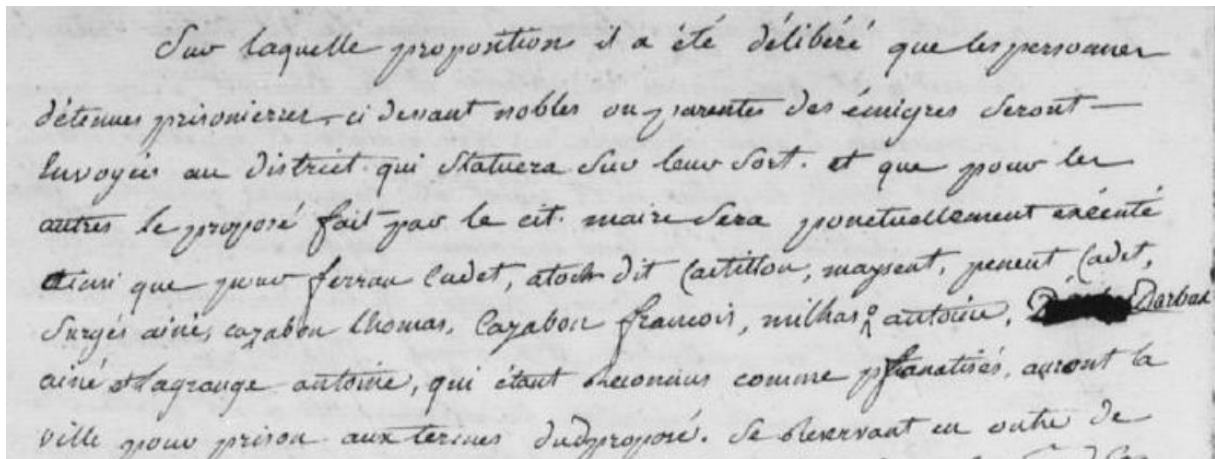 Sur laquelle proposition il a été délibéré que les personnes
détenues prisonieres, ci devant nobles ou parentes des émigres seront
Envoyés au district qui statuera sur leur sort. et que pour les
autres le proposé fait par le cit. maire sera ponctuellement exécuté
ainsi que pour ferran Cadet, atoch dit Castillon, maysent, penent Cadet,
Surgés ainé, cazabon thomas, Cazabon francois, milhas antoine, Darbas
ainé et lagrange antoine, qui étant reconnus comme fanatisés, auront la
ville pour prison aux termes dud. proposé. Se reservant en outre de